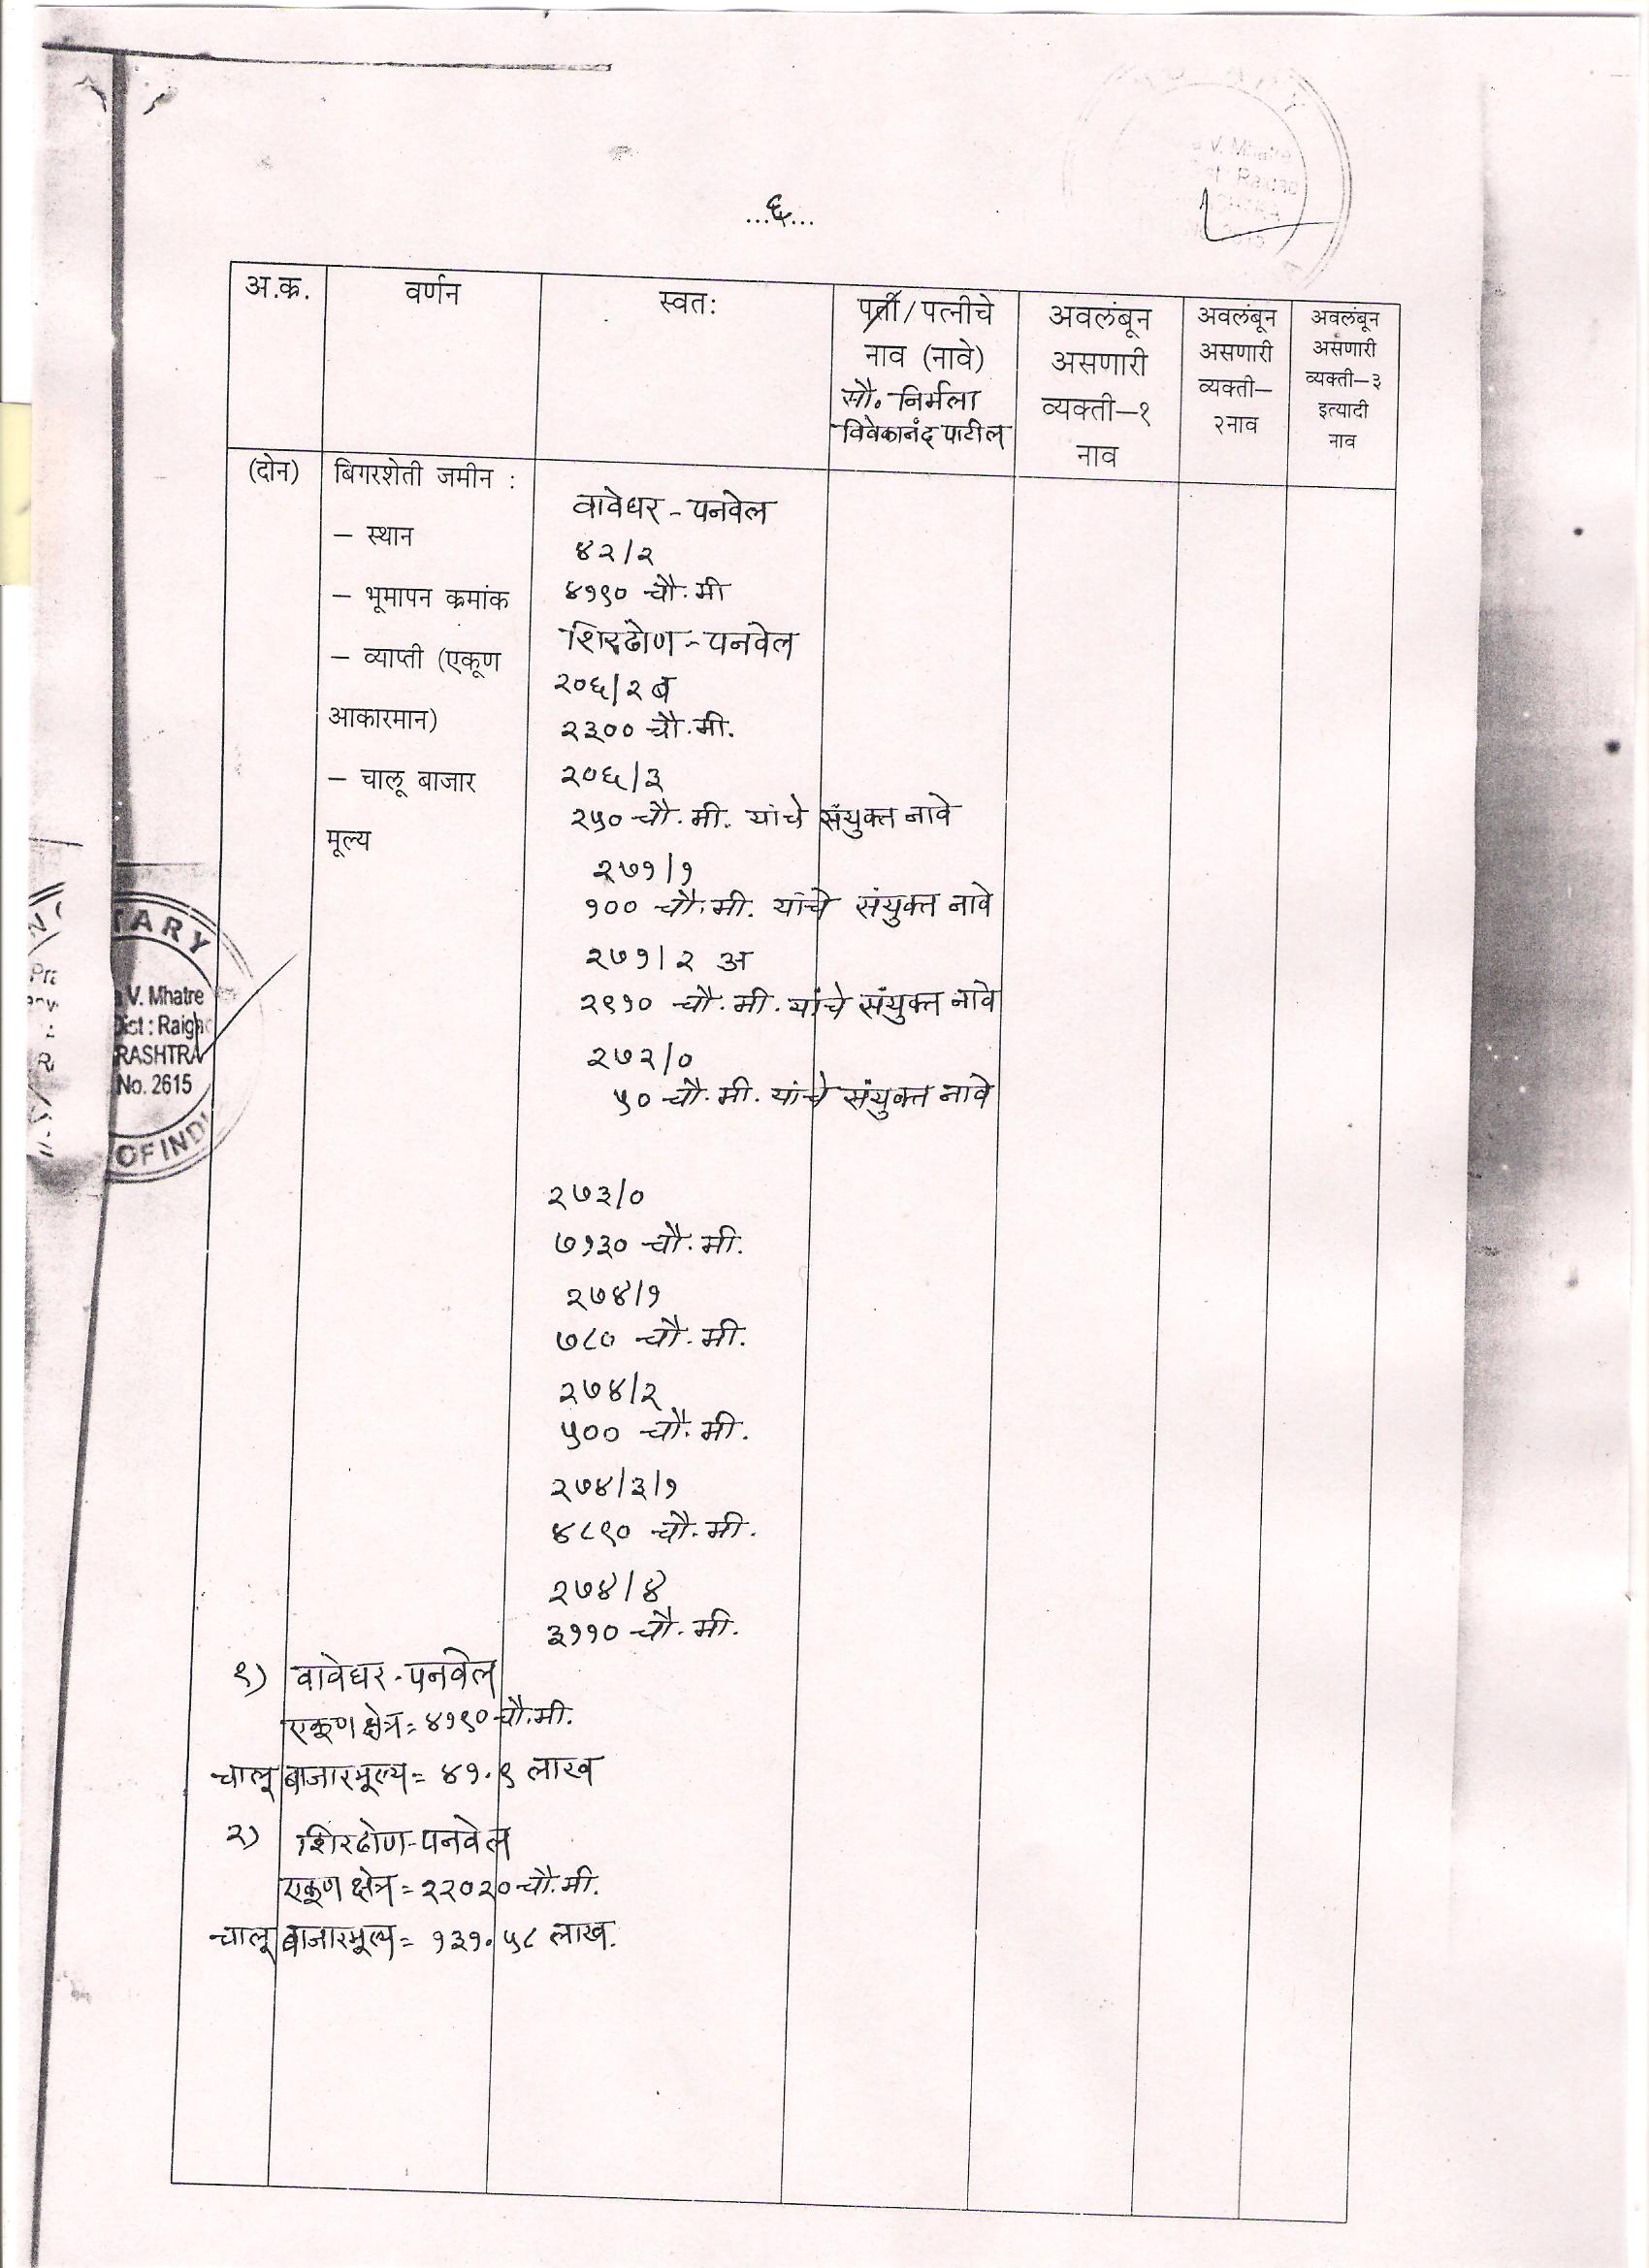 ...६...
अ.क्र.
वर्णन
स्वतः
पती/पत्नीचे
नाव (नावे)
सौ. निर्मला
विवेकानंद पाटील
अवलंबून
असणारी
व्यक्ती–१
नाव
अवलंबून
असणारी
व्यक्ती–
२नाव
अवलंबून
असणारी
व्यक्ती–३
इत्यादी
नाव
(दोन)
बिगरशेती जमीन :
– स्थान
– भूमापन क्रमांक
– व्याप्ती (एकूण
आकारमान)
– चालू बाजार
मूल्य
वावेघर - पनवेल
४२/२
४१९० चौ.मी
शिरढोण - पनवेल
२०६/२ ब
२३०० चौ.मी.
२०६/३
२५० चौ.मी. यांचे संयुक्त नावे
२७१/१
१०० चौ.मी. यांचे संयुक्त नावे
२७१/२ अ
२९१० चौ.मी. यांचे संयुक्त नावे
२७२/०
५० चौ.मी. यांचे संयुक्त नावे
२७३/०
७१३० चौ.मी.
२७४/१
७८० चौ.मी.
२७४/२
५०० चौ.मी.
२७४/३/१
४८९० चौ.मी.
२७४/४
३११० चौ.मी.
१) वावेघर - पनवेल
एकूण क्षेत्र = ४१९० चौ.मी.
चालू बाजारमूल्य = ४१.९ लाख
२) शिरढोण - पनवेल
एकूण क्षेत्र = २२०२० चौ.मी.
चालू बाजारमूल्य = १३१.५८ लाख.
TARY
V. Mhatre
Dist : Raigh
RASHTRA
No. 2615
OF INDI